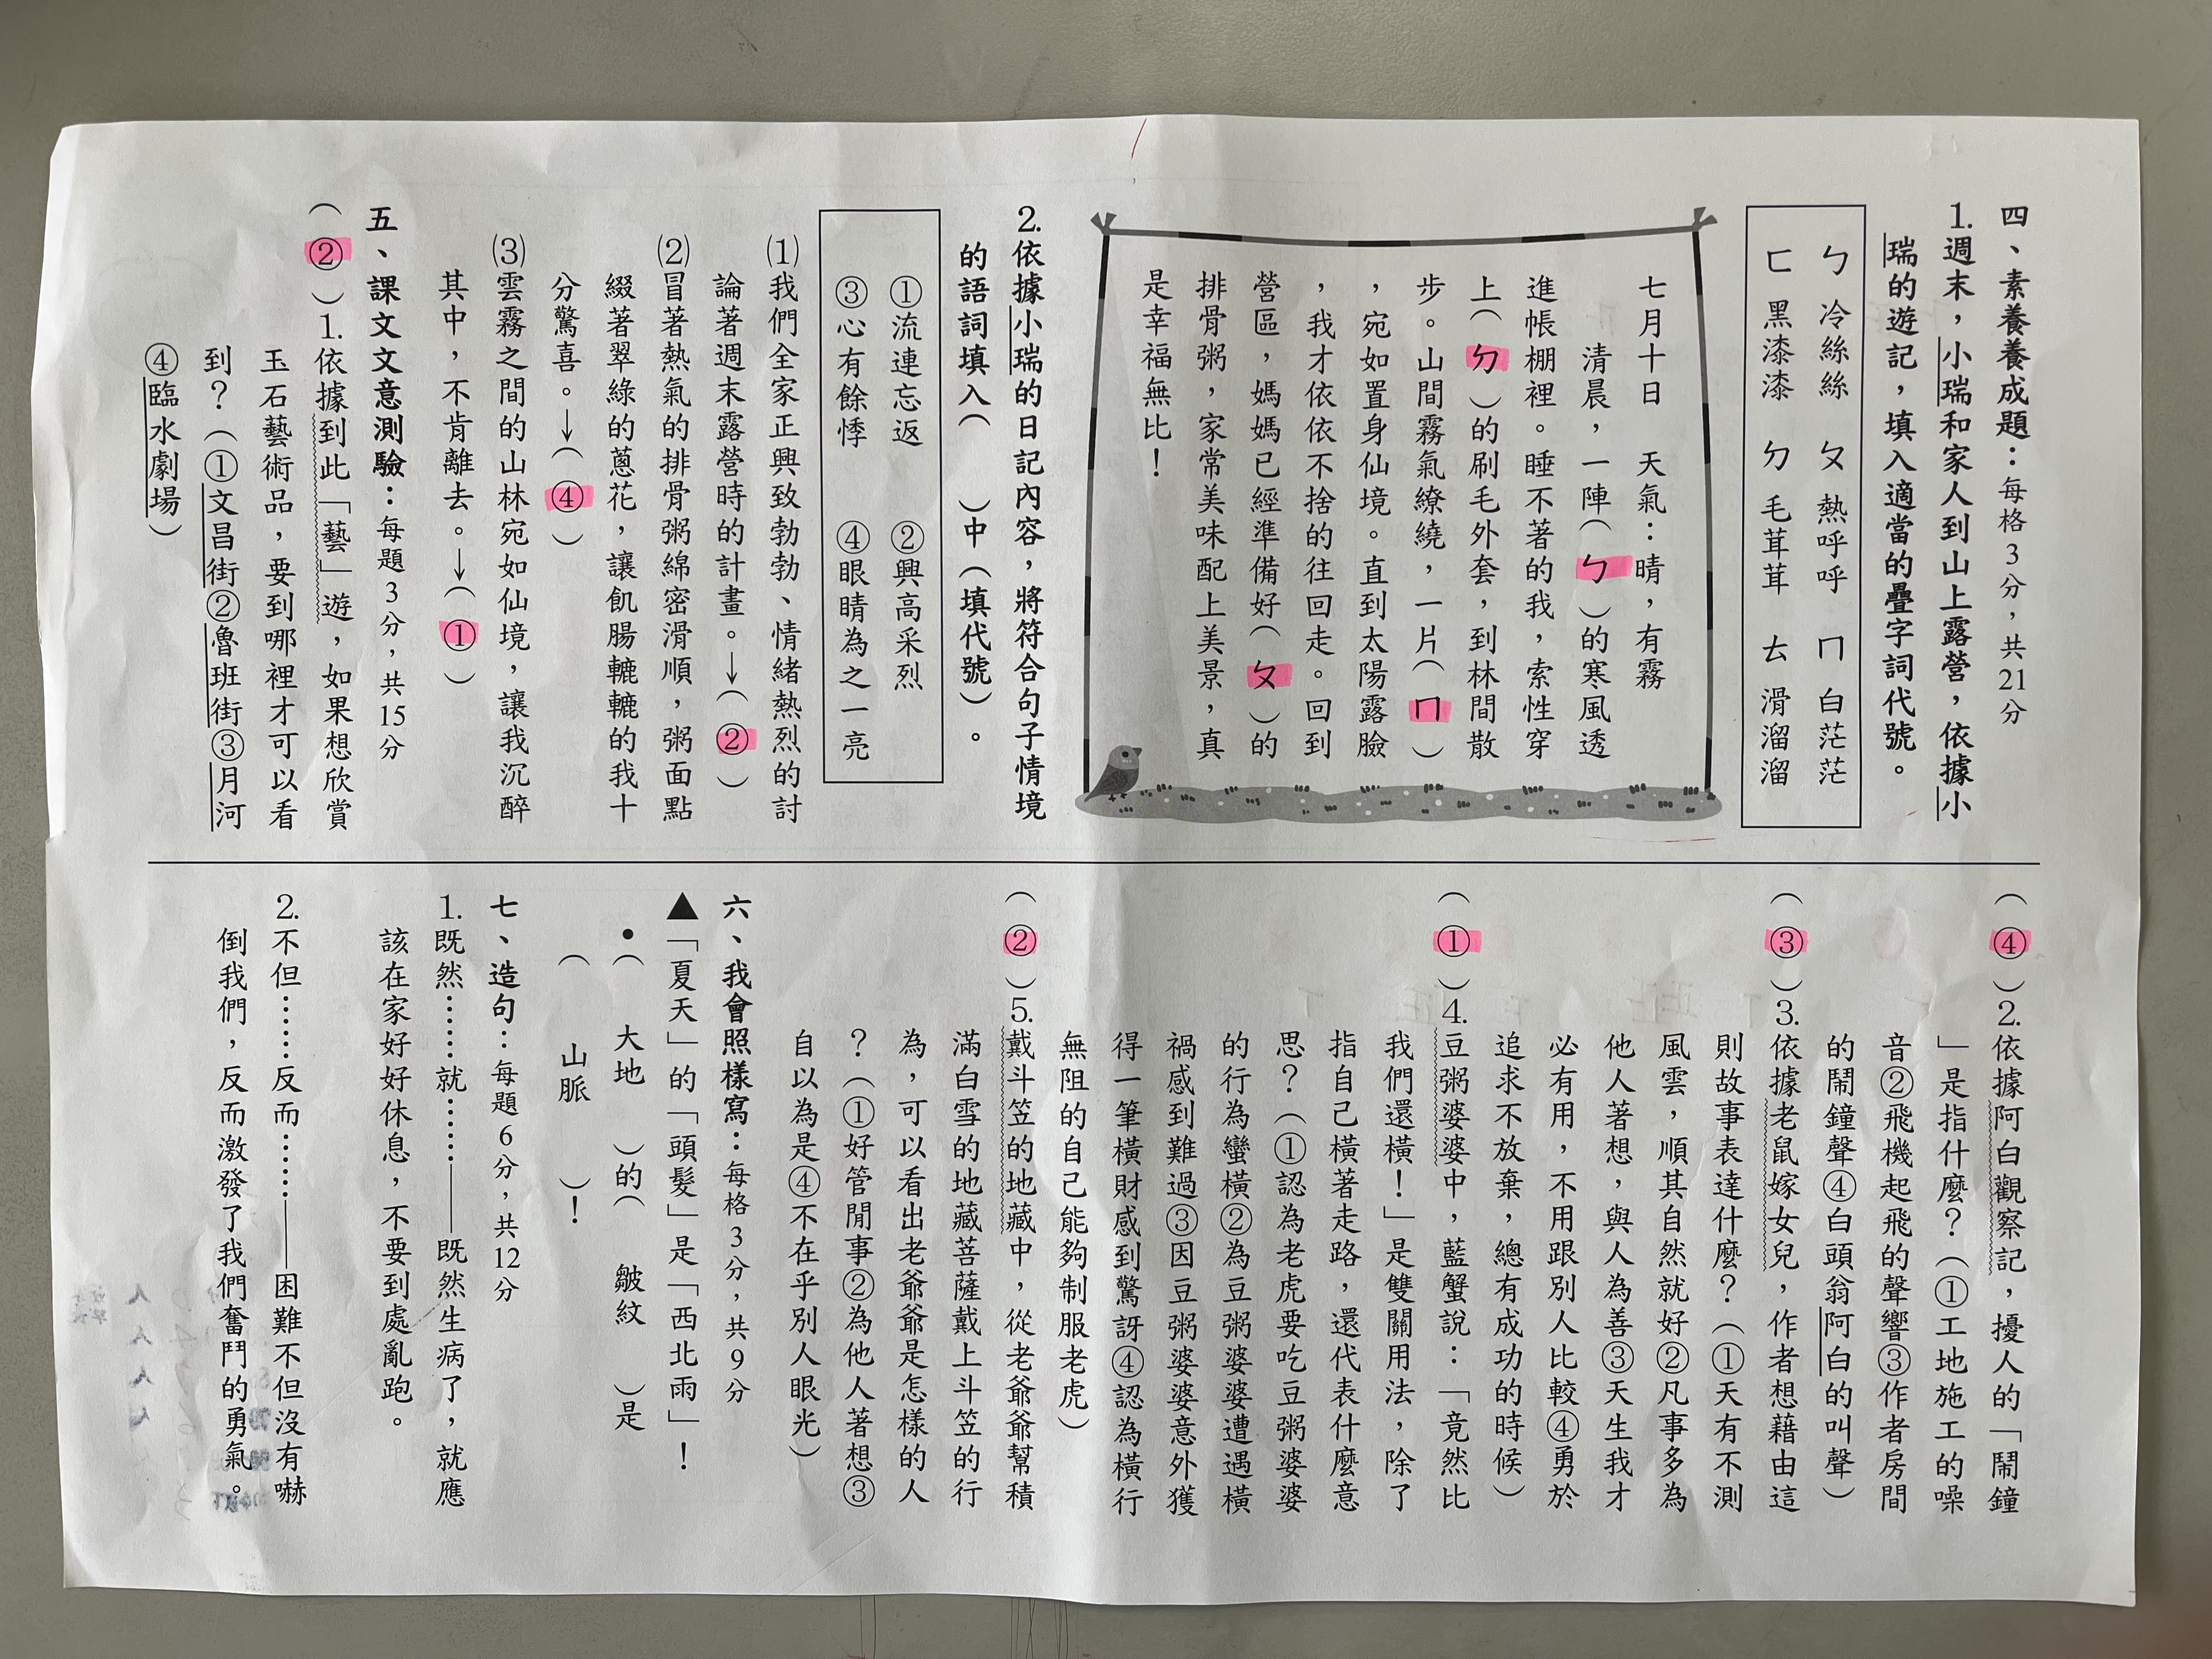 四、素養養成題：每格3分，共21分
1.週末，小瑞和家人到山上露營，依據小
瑞的遊記，填入適當的疊字詞代號。
ㄅ 冷絲絲 ㄆ 熱呼呼 ㄇ 白茫茫
ㄈ 黑漆漆 ㄉ 毛茸茸 ㄊ 滑溜溜
七月十日 天氣：晴，有霧
清晨，一陣（ㄅ）的寒風透
進帳棚裡。睡不著的我，索性穿
上（ㄉ）的刷毛外套，到林間散
步。山間霧氣繚繞，一片（ㄇ）
，宛如置身仙境。直到太陽露臉
，我才依依不捨的往回走。回到
營區，媽媽已經準備好（ㄆ）的
排骨粥，家常美味配上美景，真
是幸福無比！
2.依據小瑞的日記內容，將符合句子情境
的語詞填入（ ）中（填代號）。
①流連忘返 ②興高采烈
③心有餘悸 ④眼睛為之一亮
⑴我們全家正興致勃勃、情緒熱烈的討
論著週末露營時的計畫。→（②）
⑵冒著熱氣的排骨粥綿密滑順，粥面點
綴著翠綠的蔥花，讓飢腸轆轆的我十
分驚喜。→（④）
⑶雲霧之間的山林宛如仙境，讓我沉醉
其中，不肯離去。→（①）
五、課文文意測驗：每題3分，共15分
（②）1.依據到此「藝」遊，如果想欣賞
玉石藝術品，要到哪裡才可以看
到？（①文昌街②魯班街③月河
④臨水劇場）
（④）2.依據阿白觀察記，擾人的「鬧鐘
」是指什麼？（①工地施工的噪
音②飛機起飛的聲響③作者房間
的鬧鐘聲④白頭翁阿白的叫聲）
（③）3.依據老鼠嫁女兒，作者想藉由這
則故事表達什麼？（①天有不測
風雲，順其自然就好②凡事多為
他人著想，與人為善③天生我才
必有用，不用跟別人比較④勇於
追求不放棄，總有成功的時候）
（①）4.豆粥婆婆中，藍蟹說：「竟然比
我們還橫！」是雙關用法，除了
指自己橫著走路，還代表什麼意
思？（①認為老虎要吃豆粥婆婆
的行為蠻橫②為豆粥婆婆遭遇橫
禍感到難過③因豆粥婆婆意外獲
得一筆橫財感到驚訝④認為橫行
無阻的自己能夠制服老虎）
（②）5.戴斗笠的地藏中，從老爺爺幫積
滿白雪的地藏菩薩戴上斗笠的行
為，可以看出老爺爺是怎樣的人
？（①好管閒事②為他人著想③
自以為是④不在乎別人眼光）
六、我會照樣寫：每格3分，共9分
▲「夏天」的「頭髮」是「西北雨」！
•（ 大地 ）的（ 皺紋 ）是
（ 山脈 ）！
七、造句：每題6分，共12分
1.既然……就……——既然生病了，就應
該在家好好休息，不要到處亂跑。
2.不但……反而……——困難不但沒有嚇
倒我們，反而激發了我們奮鬥的勇氣。